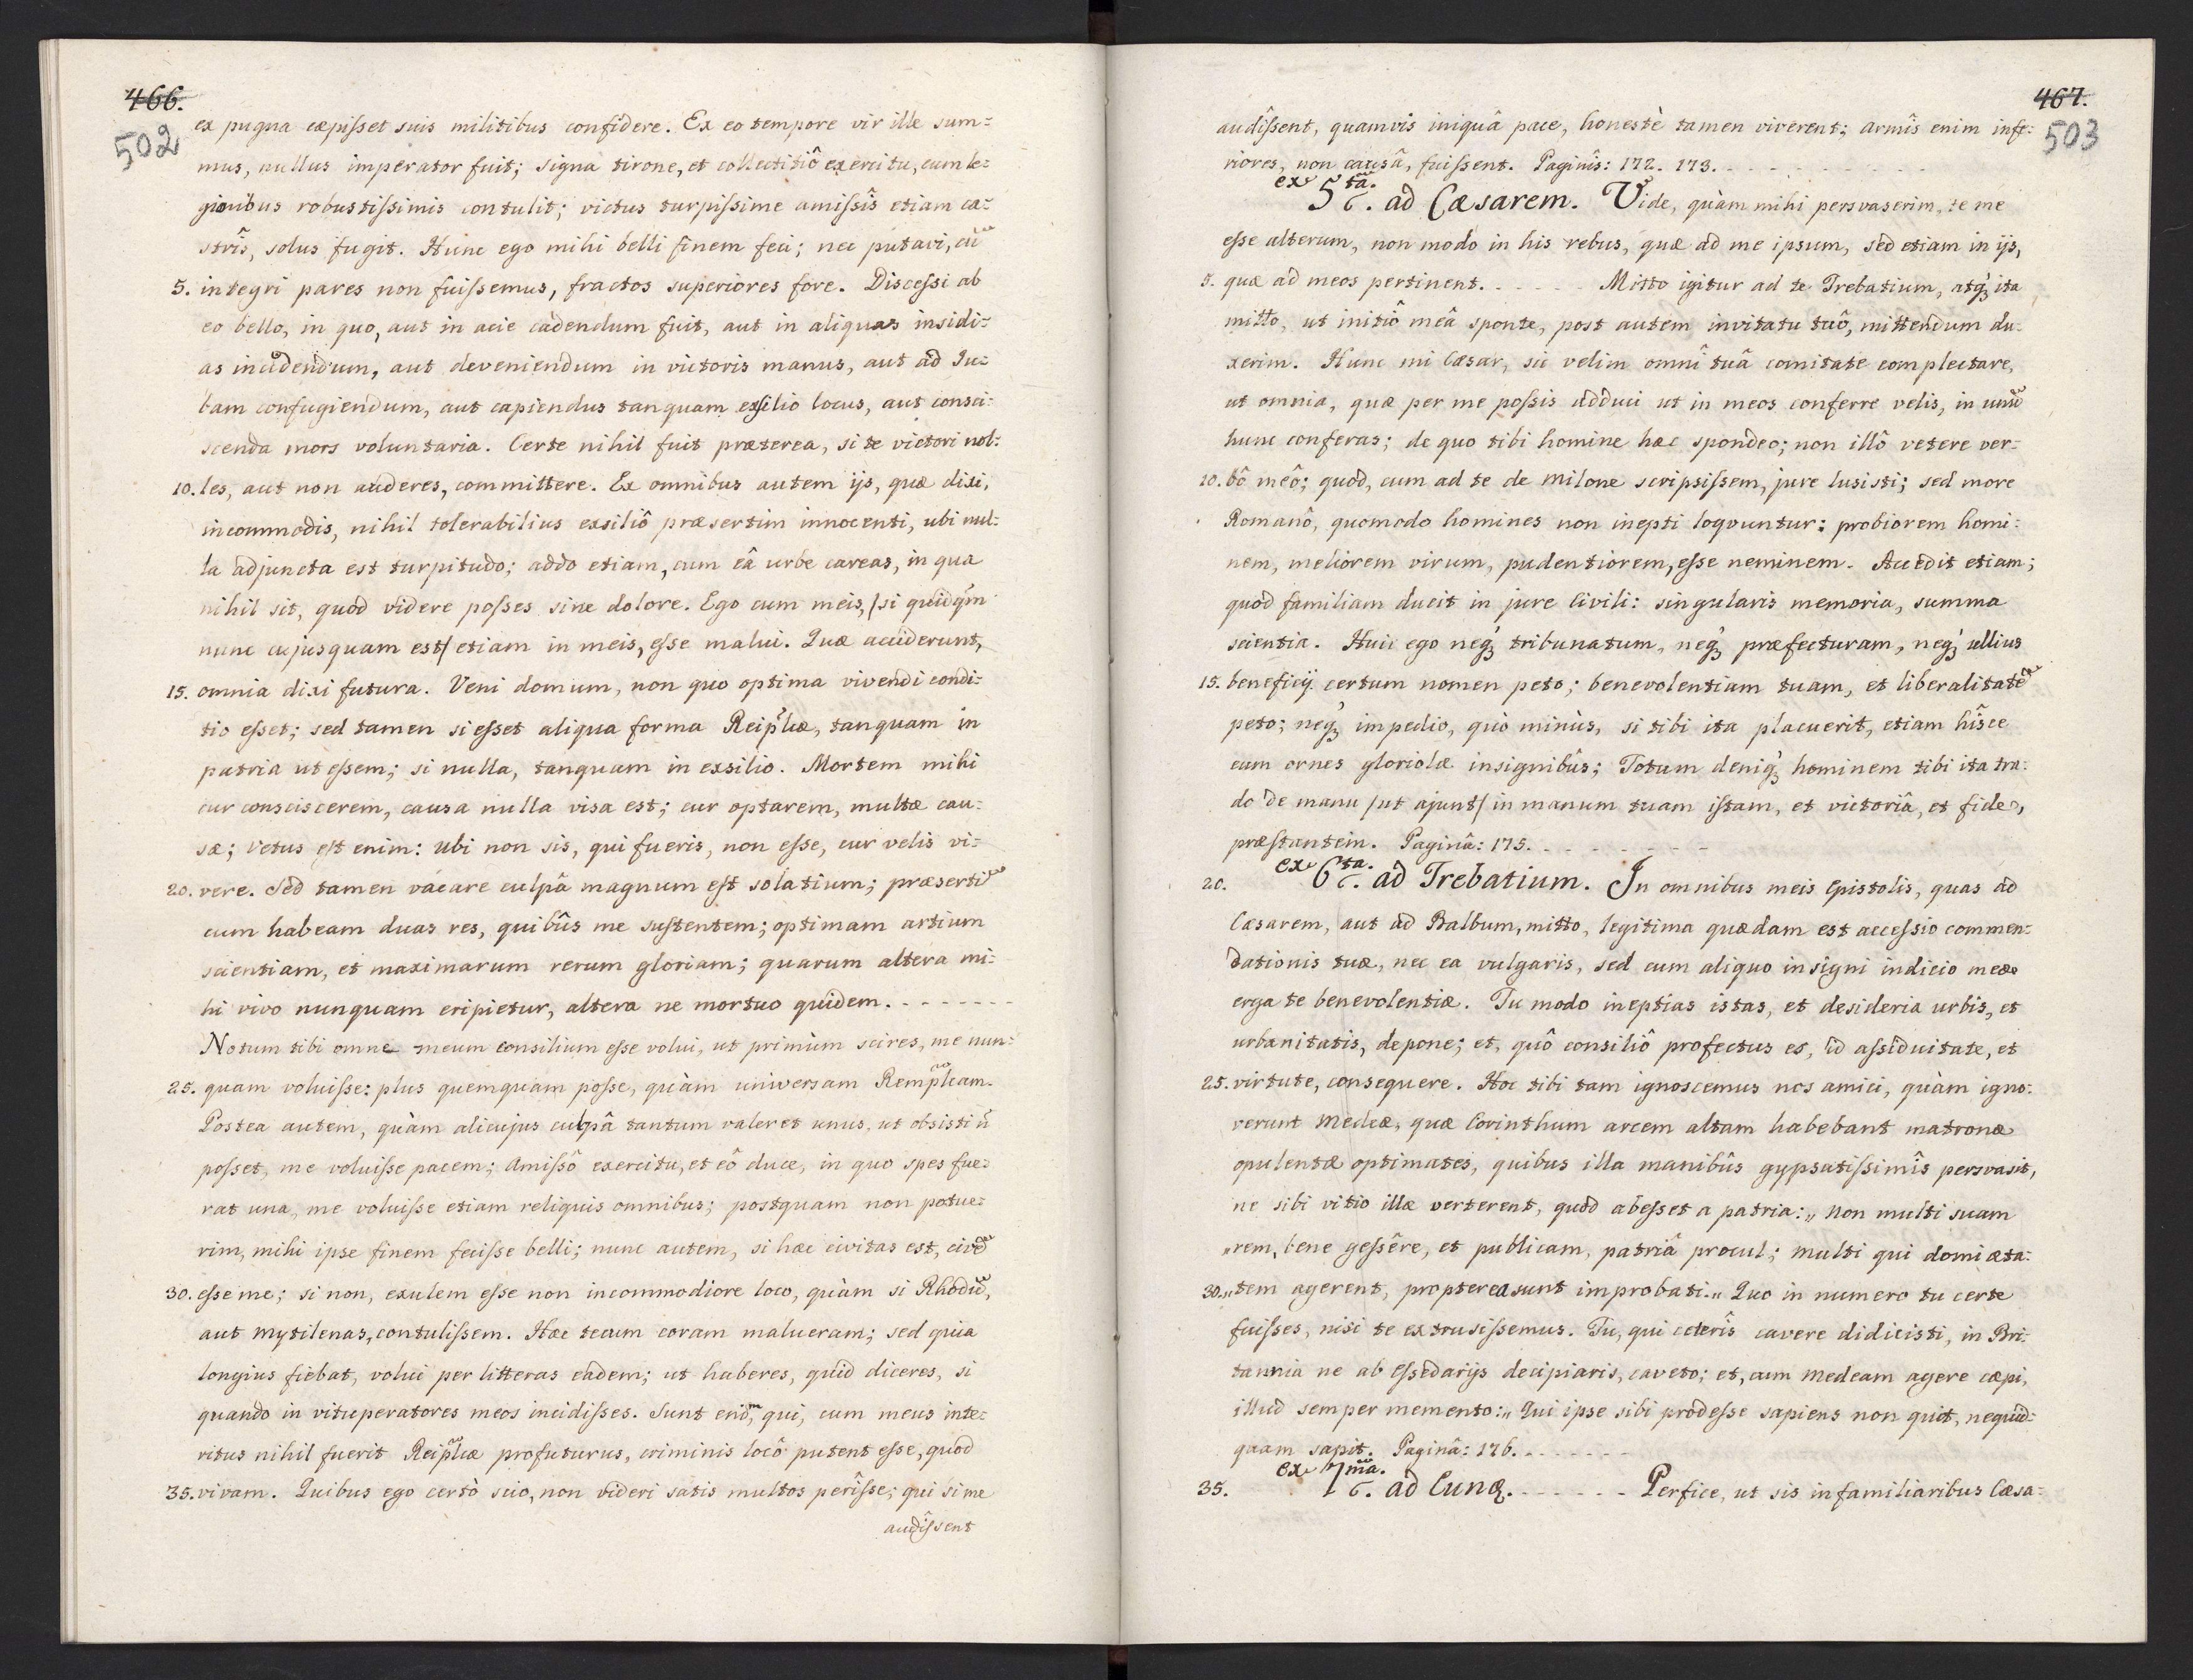 466.
502
ex pugna cæpiſset suis militibus confidere. Ex eo tempore vir ille sum=
mus, nullus imperator fuit; signa tirone, et collectitiô exercitu, cum le=
gionibus robustiſsimis contulit; victus turpiſsime amiſsîs etiam ca=
strîs, solus fugit. Hunc ego mihi belli finem feci; nec putavi, cũ
5. integri pares non fuiſsemus, fractos superiores fore. Disceſsi ab
eo bello, in quo, aut in acie cadendum fuit, aut in aliquas insidi=
as incidendum, aut deveniendum in victoris manus, aut ad Ju=
bam confugiendum, aut capiendus tanquam exsilio locus, aut consci=
scenda mors voluntaria. Certe nihil fuit præterea, si te victori nol=
10. les, aut non auderes, committere. Ex omnibus autem ijs, quæ dixi,
incommodis, nihil tolerabilius exsiliô præsertim innocenti, ubi nul=
la adjuncta est turpitudo; addo etiam, cum eâ urbe careas, in qua
nihil sit, quod videre poſses sine dolore. Ego cum meis, /si quidq̃m
nunc cujusquam est/ etiam in meis, eſse malui. Quæ acciderunt,
15. omnia dixi futura. Veni domum, non quo optima vivendi condi=
tio eſset; sed tamen si eſset aliqua forma Reip̃licæ, tanquam in
patria ut eſsem; si nulla, tanquam in exsilio. Mortem mihi
cur consciscerem, causa nulla visa est; cur optarem, multæ cau=
sæ; Vetus eſt enim: ubi non sis, qui fueris, non eſse, cur velis vi=
20. vere. Sed tamen vacare culpâ magnum eſt solatium; præsertĩ
cum habeam duas res, quibûs me suſtentem; optimam artium
scientiam, et maximarum rerum gloriam; quarum altera mi=
hi vivo nunquam eripietur, altera ne mortuo quidem. - - - - - - -
Notum tibi omne meum consilium eſse volui, ut primùm scires, me nun=
25. quam voluiſse: plus quemquam poſse, quàm universam Remp̃licam.
Postea autem, quàm alicujus culpâ tantum valeret unus, ut obsisti ñ
poſset, me voluiſse pacem; Amiſsô exercitu, et eô duce, in quo spes fue=
rat una, me voluiſse etiam reliquis omnibus; postquam non potue=
rim, mihi ipse finem feciſse belli; nunc autem, si hæc civitas est, civẽ
30. eſse me; si non, exulem eſse non incommodiore loco, quàm si Rhodũ,
aut Mytilenas, contuliſsem. Hæc tecum coram malueram; sed quia
longius fiebat, volui per litteras eadem; ut haberes, quid diceres, si
quando in vituperatores meos incidiſses. Sunt enim, qui, cum meus inte=
ritus nihil fuerit Reip̃licæ profuturus, criminis locô putent eſse, quod
35. vivam. Quibus ego certò scio, non videri satis multos perîſse; qui si me
audîſsent
467.
503
audîſsent, quamvis iniquâ pace, honestè tamen viverent; armîs enim infe=
riores, non causâ, fuiſsent. Paginîs: 172. 173. - - - - - - - - - -
ex 5tã. c. ad Cæsarem. Vide, quàm mihi persvaserim, te me
eſse alterum, non modo in his rebus, quæ ad me ipsum, sed etiam in ijs,
5. quæ ad meos pertinent. - - - - - Mitto igitur ad te Trebatium, atq́ꝫ ita
mitto, ut initiô meâ sponte, post autem invitatu tuô, mittendum du=
xerim. Hunc mi Cæsar, sic velim omnî tuâ comitate complectare,
ut omnia, quæ per me poſsis adduci ut in meos conferre velis, in unũ
hunc conferas; de quo tibi homine hæc spondeo; non illô vetere ver=
10. bô meô; quod, cum ad te de Milone scripsiſsem, jure lusisti; sed more
Romanô, quomodo homines non inepti loqvuntur: probiorem homi=
nem, meliorem virum, pudentiorem, eſse neminem. Accedit etiam;
quod familiam ducit in jure Civili: singularis memoria, summa
scientia. Huic ego neq́ꝫ tribunatum, neq́ꝫ præfecturam, neq́ꝫ ullius
15. beneficij certum nomen peto; benevolentiam tuam, et liberalitatẽ
peto; neq́ꝫ impedio, quò minùs, si tibi ita placuerit, etiam hîsce
eum ornes gloriolæ insignibûs; Totum deniq́ꝫ hominem tibi ita tra=
do de manu /ut ajunt/ in manum tuam iſtam, et victoriâ, et fide,
præſtantem. Paginâ: 175. - - - - - - -
20. ex 6ta. c. ad Trebatium. In omnibus meis Epistolis, quas ad
Cæsarem, aut ad Balbum, mitto, legitima quædam est acceſsio commen=
dationis tuæ, nec ea vulgaris, sed cum aliquo insigni indicio meæ
erga te benevolentiæ. Tu modo ineptias istas, et desideria urbis, et
urbanitatis, depone; et, quô consiliô profectus es, id aſsiduitate, et
25. virtute, consequere. Hoc tibi tam ignoscemus nos amici, quàm igno=
verunt Medeæ, quæ Corinthum arcem altam habebant matronæ
opulentæ optimates, quibus illa manibûs gypsatiſsimîs persvasit,
ne sibi vitio illæ verterent, quod abeſset a patria: „ Non multi suam
„rem, bene geſsêre, et publicam, patriâ procul; multi qui domi æta=
30. „tem agerent, propterea sunt improbati. „ Quo in numero tu certe
fuiſses, nisi te extrusiſsemus. Tu, qui ceterîs cavere didicisti, in Bri=
tannia ne ab Eſsedarijs decipiaris, caveto; et, cum Medeam agere cæpi,
illud semper memento: „ Qui ipse sibi prodeſse sapiens non quit, nequid=
quam sapit. Paginâ: 176. - - - - - - -
35. ex 7mã. c. ad Eunđ. - - - - - - Perfice, ut sis in familiaribus Cæsa=